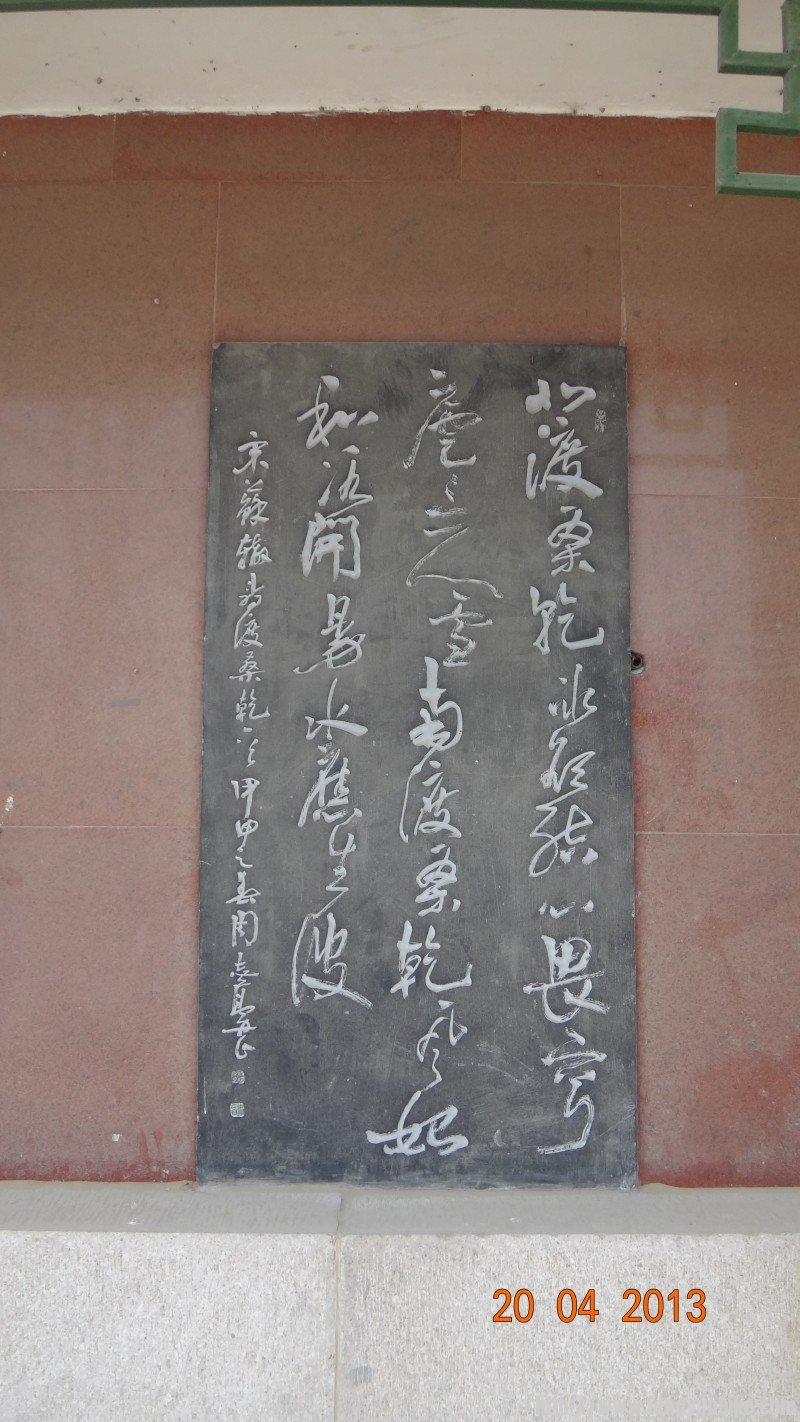 北渡桑乾冰欲結心畏穹
廬三尺雪南渡桑乾風始
和冰開易水應生波
宋蘇轍渡桑乾甲申之春周志高書
20 04 2013